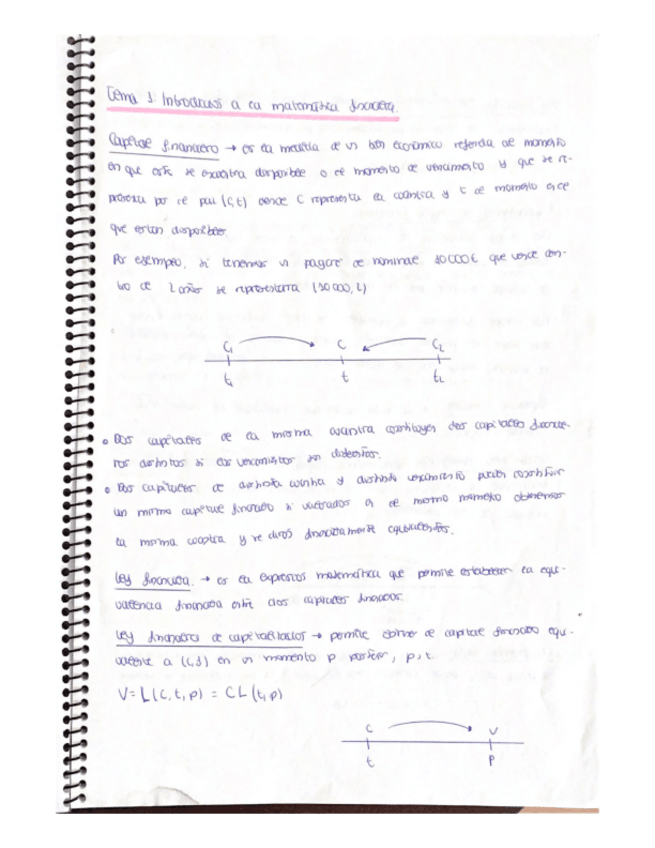 Tema 1: Introducción a la matemática financiera.
Capital financiero → es la medida de un bien económico referida al momento
en que este se encuentra disponible o al momento de vencimiento y que se re-
presenta por el par (C,t) donde C representa la cuantía y t el momento en el
que están disponibles.
Por ejemplo, si tenemos un pagaré de nominal 10000€ que vence den-
tro de 2 años se representaría (10000,2)
C₁ C C₂
t₁ t t₂
• Dos capitales de la misma cuantía constituyen dos capitales financie-
ros distintos si los vencimientos son distintos.
• Dos capitales de distinta cuantía y distinto vencimiento pueden constituir
un mismo capital financiero si valorados en el mismo momento obtenemos
la misma cuantía y se dirán financieramente equivalentes.
Ley financiera. → es la expresión matemática que permite establecer la equi-
valencia financiera entre dos capitales financieros.
Ley financiera de capitalización → permite obtener el capital financiero equi-
valente a (C,t) en un momento p posterior, p>t.
V = L(C,t,p) = C L(t,p)
C V
t p